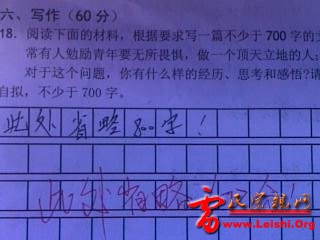 六、写作(60分)
18. 阅读下面的材料,根据要求写一篇不少于700字的文
常有人勉励青年要无所畏惧,做一个顶天立地的人;
对于这个问题,你有什么样的经历、思考和感悟?请
自拟,不少于700字。
此外省略800字!
此外省略
www.Leishi.Org